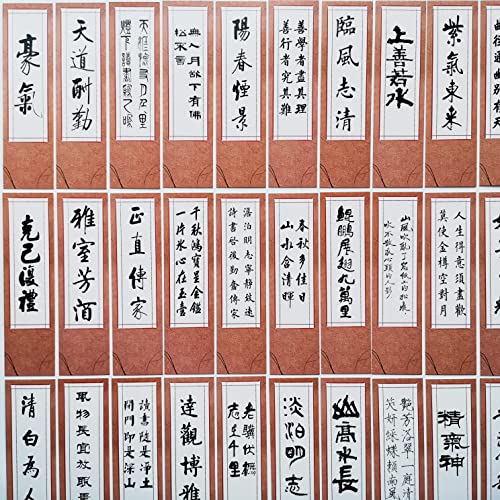 豪氣
天道酬勤
陽春煙景
善學者盡其理
善行者究其難
臨風志清
上善若水
紫氣東來
克己復禮
雅室芳酒
正直傳家
千秋鴻寶呈金鑑
一片冰心在玉壺
澹泊明志寧靜致遠
詩書啓後勤奮傳家
春秋多佳日
山水含清暉
鯤鵬展翅九萬里
山風吹亂了窗紙上的松痕
吹不散我心頭的人影
人生得意須盡歡
莫使金樽空對月
清白為人
風物長宜放眼量
讀書隨處淨土
閉門即是深山
達觀博雅
老驥伏櫪
志在千里
淡泊明志
山高水長
精氣神